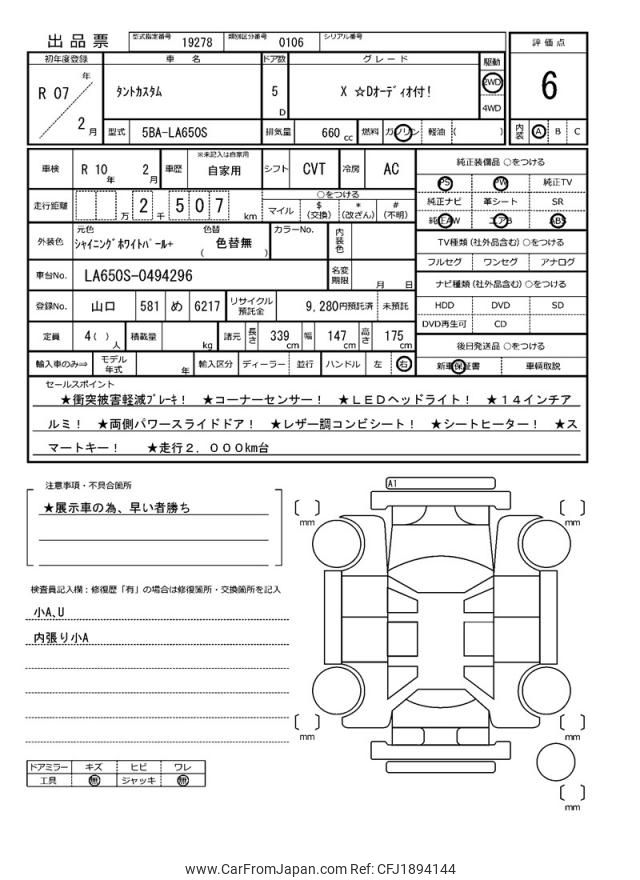 出品票 型式指定番号 19278 類別区分番号 0106 シリアル番号
初年度登録 車 名 ドア数 グレード 駆動 評価点
R 07 年 2 月 タントカスタム 5 D X ☆Dオーディオ付! 2WD 4WD 6
型式 5BA-LA650S 排気量 660 cc 燃料 ガソリン 軽油 ( ) 内装 A B C
車検 R 10 年 2 月 車歴 ※未記入は自家用 自家用 シフト CVT 冷房 AC 純正装備品 ○をつける
PS PW 純正TV
走行距離 万 2 千 5 0 7 km ○をつける 純正ナビ 革シート SR
マイル $ (交換) * (改ざん) # (不明) 純正AW エアB ABS
外装色 元色 シャイニングホワイトパール+ 色替 ( 色替無 ) カラーNo. 内装色 TV種類 (社外品含む) ○をつける
フルセグ ワンセグ アナログ
車台No. LA650S-0494296 名変期限 月 日 ナビ種類 (社外品含む) ○をつける
登録No. 山口 581 め 6217 リサイクル預託金 9,280円預託済 未預託 HDD DVD SD
DVD再生可 CD
定員 4( ) 人 積載量 kg 諸元 長さ 339 cm 幅 147 cm 高さ 175 cm 後日発送品 ○をつける
輸入車のみ⇒ モデル年式 年 輸入区分 ディーラー 並行 ハンドル 左 右 新車保証書 車輌取説
セールスポイント
★衝突被害軽減ブレーキ! ★コーナーセンサー! ★LEDヘッドライト! ★14インチア
ルミ! ★両側パワースライドドア! ★レザー調コンビシート! ★シートヒーター! ★ス
マートキー! ★走行2.000km台
注意事項・不具合箇所
★展示車の為、早い者勝ち
A1
mm
mm
検査員記入欄：修復歴「有」の場合は修復箇所・交換箇所を記入
小A､U
内張り小A
mm
mm
mm
ドアミラー キズ ヒビ ワレ
工具 無 ジャッキ 無
www.CarFromJapan.com Ref: CFJ1894144